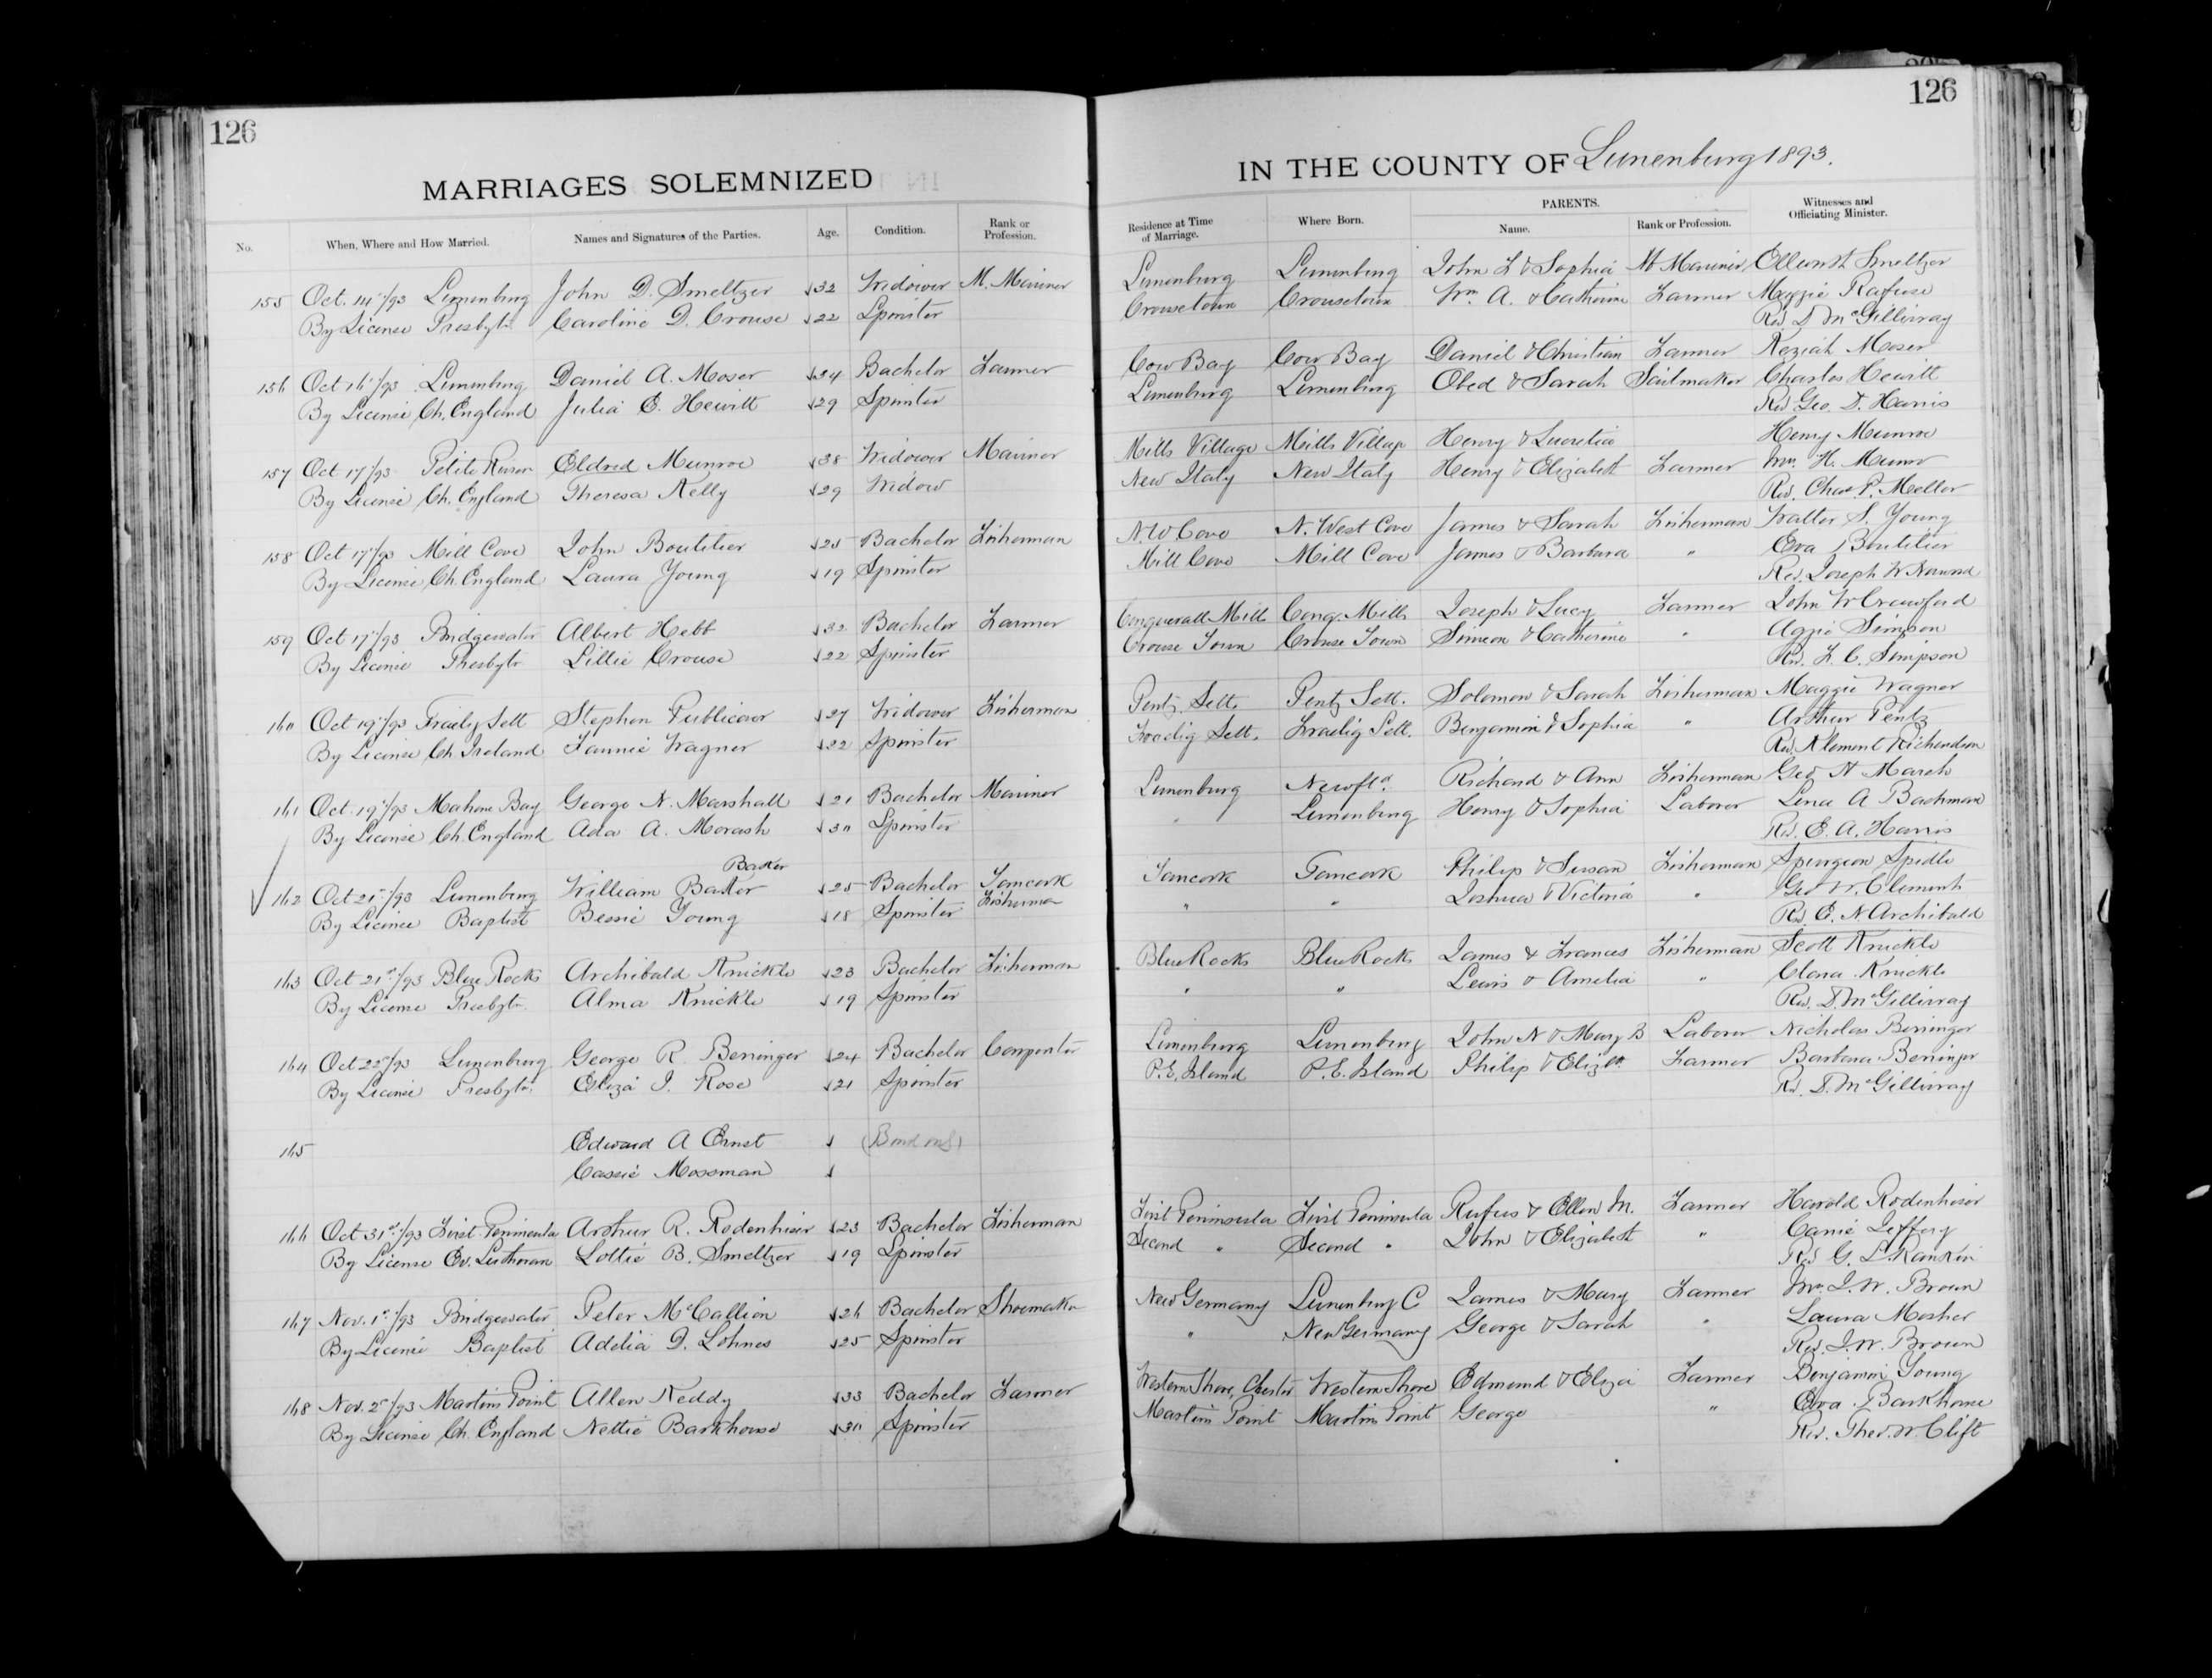 126
126
MARRIAGES SOLEMNIZED
IN THE COUNTY OF Lunenburg 1893.
No. When, Where and How Married. Names and Signatures of the Parties. Age. Condition. Rank or Profession.
Residence at Time of Marriage. Where Born. PARENTS. Name. Rank or Profession. Witnesses and Officiating Minister.
155 Oct. 14"/93 Lunenburg John D. Smeltzer 32 Widower M. Mariner Lunenburg Lunenburg John L & Sophia M Mariner Smeltzer
By License Presbytr. Caroline D. Crouse 22 Spinster Crousetown Crousetown Wm A. & Catherine Farmer Maggie Rafuse
Rev D McGillivray
156 Oct 16"/93 Lunenburg Daniel A. Moser 34 Bachelor Farmer Cow Bay Cow Bay Daniel & Christian Farmer Keziah Moser
By License Ch. England Julia E. Hewitt 29 Spinster Lunenburg Lunenburg Obed & Sarah Sailmaker Charles Hewitt
Rev Geo. D. Harris
157 Oct 17"/93 Petite Riviere Eldred Munroe 38 Widower Mariner Mills Village Mills Village Henry & Lucretia Henry Munroe
By License Ch. England Theresa Kelly 29 Widow New Italy New Italy Henry & Elizabeth Farmer Mrs. H. Munro
Rev. Chas. P. Mellor
158 Oct 17"/93 Mill Cove John Boutilier 25 Bachelor Fisherman N.W Cove N. West Cove James & Sarah Fisherman Walter S. Young
By License Ch. England Laura Young 19 Spinster Mill Cove Mill Cove James & Barbara " Eva Boutilier
Rev. Joseph W Norwood
159 Oct 17"/93 Bridgewater Albert Hebb 32 Bachelor Farmer Conquerall Mills Conq. Mills Joseph & Lucy Farmer John W Crawford
By License Presbytr Lillie Crouse 22 Spinster Crouse Town Crouse Town Simeon & Catherine " Aggie Simpson
Rev. F. C. Simpson
160 Oct 19"/93 Fraelig Sett Stephen Publicover 27 Widower Fisherman Pentz Sett. Pentz Sett. Solomon & Sarah Fisherman Maggie Wagner
By License Ch. Ireland Fannie Wagner 22 Spinster Fraelig Sett. Fraelig Sett. Benjamin & Sophia " Arthur Pentz
Rev. Klement Richardson
161 Oct. 19"/93 Mahone Bay George N. Marshall 21 Bachelor Mariner Lunenburg Newfld. Richard & Ann Fisherman Geo N Marsh
By License Ch. England Ada A. Morash 30 Spinster " Lunenburg Henry & Sophia Laborer Lena A Bachman
Rev. E. A. Harris
Baker
162 Oct 21st/93 Lunenburg William Baker 25 Bachelor Tancook Fisherman Tancook Tancook Philip & Susan Fisherman Spurgeon Spidle
By License Baptist Bessie Young 18 Spinster " " Joshua & Victoria " Geo W. Clements
Rev E. N. Archibald
163 Oct 21st/93 Blue Rocks Archibald Knickle 23 Bachelor Fisherman Blue Rocks Blue Rocks James & Frances Fisherman Scott Knickle
By License Presbytr. Alma Knickle 19 Spinster " " Lewis & Amelia " Clara Knickle
Rev. D. McGillivray
164 Oct 22"/93 Lunenburg George R. Berringer 24 Bachelor Carpenter Lunenburg Lunenburg John N & Mary B Laborer Nicholas Berringer
By License Presbytr. Eliza J. Rose 21 Spinster P.E. Island P.E. Island Philip & Elizth Farmer Barbara Berringer
Rev. D. McGillivray
165 Edward A Ernst (Bond only)
Cassie Mossman
166 Oct 31st/93 First Peninsula Arthur R. Rodenhiser 23 Bachelor Fisherman First Peninsula First Peninsula Rufus & Ellen M. Farmer Harold Rodenhiser
By License Ev. Lutheran Lottie B. Smeltzer 19 Spinster Second " Second " John & Elizabeth " Carrie Jeffery
Rev G. L. Rankin
167 Nov. 1st/93 Bridgewater Peter McCallion 26 Bachelor Shoemaker New Germany Lunenburg C James & Mary Farmer Mrs. J. W. Brown
By License Baptist Adelia D. Lohnes 25 Spinster " New Germany George & Sarah " Laura Mosher
Rev. J. W. Brown
168 Nov. 2"/93 Martins Point Allen Keddy 33 Bachelor Farmer Western Shore, Chester Western Shore Edmund & Eliza Farmer Benjamin Young
By License Ch. England Nettie Barkhouse 30 Spinster Martins Point Martins Point George " Eva Barkhouse
Rev. Theo. W. Clift